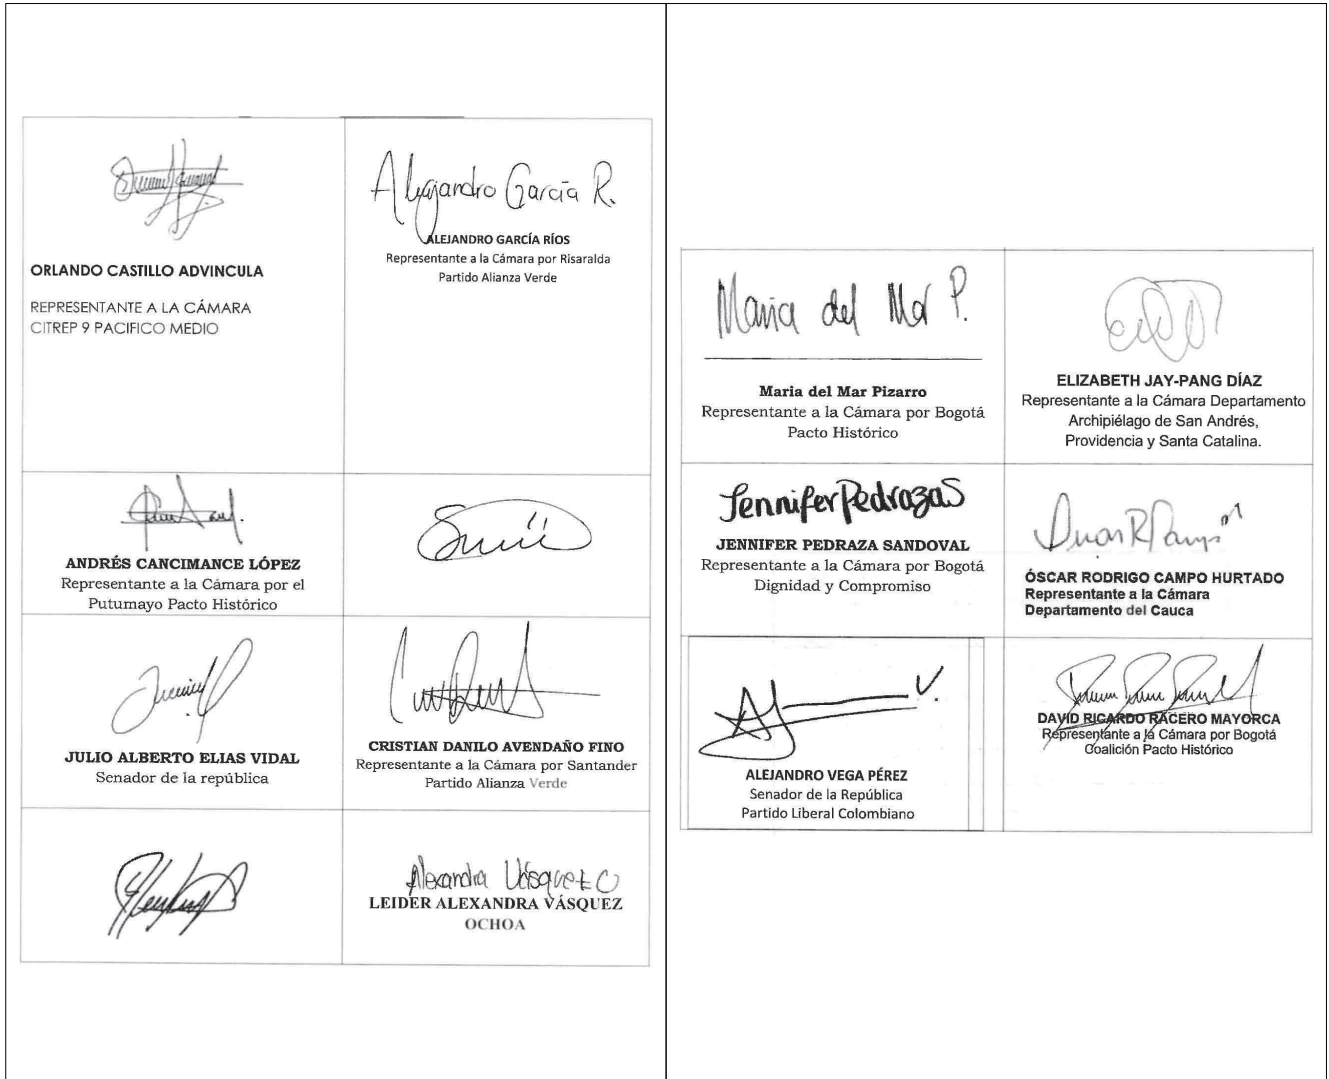 ORLANDO CASTILLO ADVINCULA
REPRESENTANTE A LA CÁMARA
CITREP 9 PACIFICO MEDIO
Alejandro García R.
ALEJANDRO GARCÍA RÍOS
Representante a la Cámara por Risaralda
Partido Alianza Verde
ANDRÉS CANCIMANCE LÓPEZ
Representante a la Cámara por el
Putumayo Pacto Histórico
JULIO ALBERTO ELIAS VIDAL
Senador de la república
CRISTIAN DANILO AVENDAÑO FINO
Representante a la Cámara por Santander
Partido Alianza Verde
Alexandra Vásquez O
LEIDER ALEXANDRA VÁSQUEZ
OCHOA
Maria del Mar P.
Maria del Mar Pizarro
Representante a la Cámara por Bogotá
Pacto Histórico
ELIZABETH JAY-PANG DÍAZ
Representante a la Cámara Departamento
Archipiélago de San Andrés,
Providencia y Santa Catalina.
Jennifer Pedraza S
JENNIFER PEDRAZA SANDOVAL
Representante a la Cámara por Bogotá
Dignidad y Compromiso
ÓSCAR RODRIGO CAMPO HURTADO
Representante a la Cámara
Departamento del Cauca
ALEJANDRO VEGA PÉREZ
Senador de la República
Partido Liberal Colombiano
DAVID RICARDO RACERO MAYORCA
Representante a la Cámara por Bogotá
Coalición Pacto Histórico